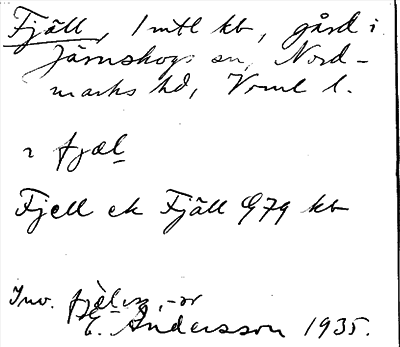 Fjäll, 1 mtl kb, gård i
Järnskogs sn, Nord-
marks hd, Vrml l.
fjæl
Fjell ek Fjäll G79 kb
Inv. -ar
E. Andersson 1935.